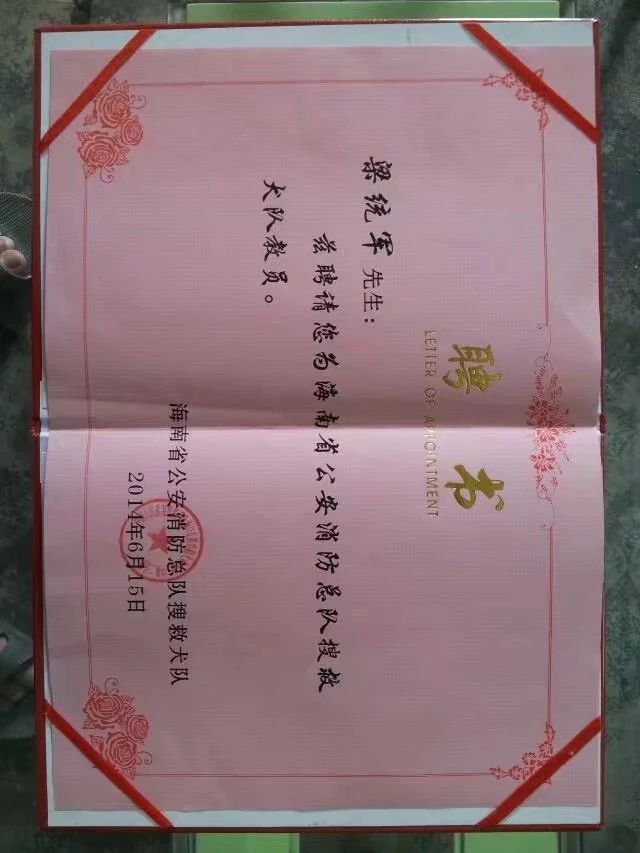 聘书
LETTER OF APPOINTMENT
梁统军先生：
兹聘请您为海南省公安消防总队搜救
犬队教员。
海南省公安消防总队搜救犬队
2014年6月15日